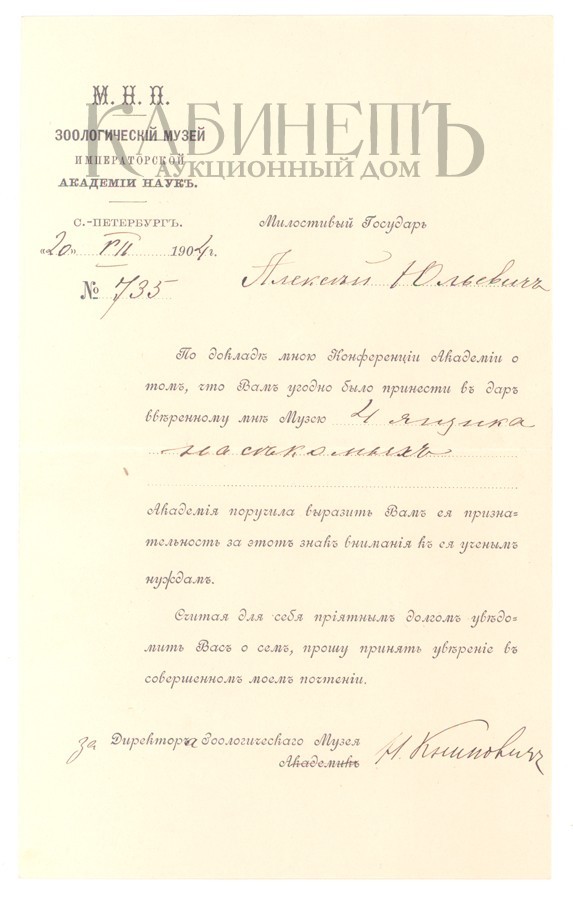 М. Н. П.
КАБИНЕТЪ
АУКЦИОННЫЙ ДОМ
ЗООЛОГИЧЕСКІЙ МУЗЕЙ
ИМПЕРАТОРСКОЙ
АКАДЕМІИ НАУКЪ.
С.-ПЕТЕРБУРГЪ.
«20» VII 1904 г.
№ 735
Милостивый Государь
Алексѣй Юльевичъ
По докладѣ мною Конференціи Академіи о
томъ, что Вамъ угодно было принести въ даръ
ввѣренному мнѣ Музею 4 ящика
насѣкомыхъ
Академія поручила выразить Вамъ ея призна-
тельность за этотъ знакъ вниманія къ ея ученымъ
нуждамъ.
Считая для себя пріятнымъ долгомъ увѣдо-
мить Васъ о семъ, прошу принять увѣреніе въ
совершенномъ моемъ почтеніи.
за Директора Зоологическаго Музея
Академикъ
Н. Книповичъ